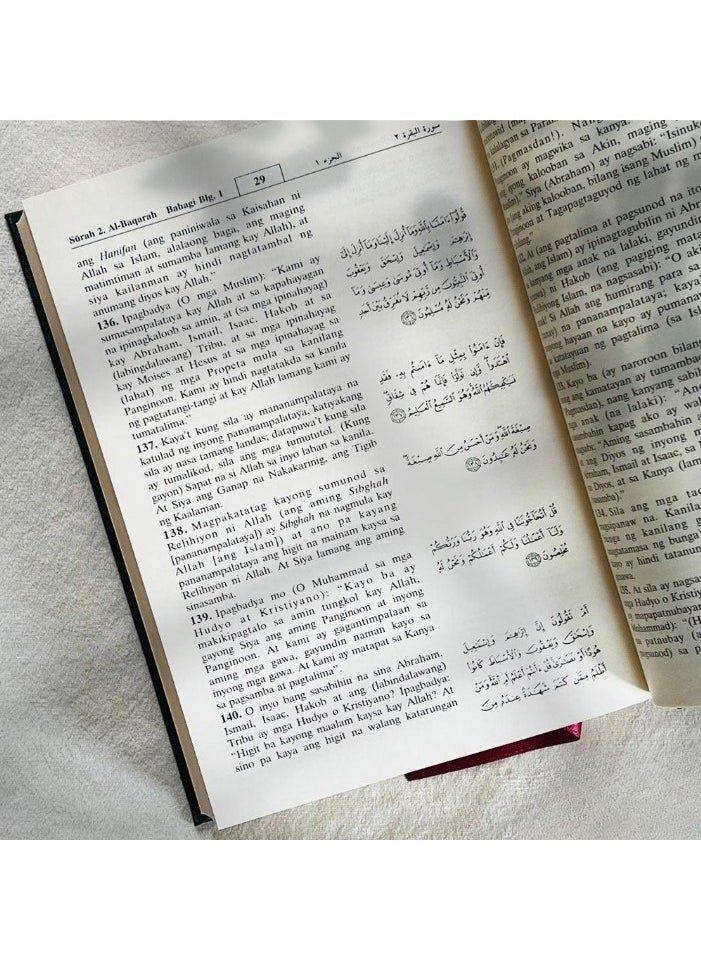 Sûrah 2. Al-Baqarah Bahagi Blg. 1
29
الجزء ١
سورة البقرة ٢
ang Hanifan (ang paniniwala sa Kaisahan ni
Allah sa Islam, alalaong baga, ang maging
matimtiman at sumamba lamang kay Allah), at
siya kailanman ay hindi nagtatambal ng
anumang diyos kay Allah.”
136. Ipagbadya (O mga Muslim): “Kami ay
sumasampalataya kay Allah at sa kapahayagan
na ipinagkaloob sa amin, at (sa mga ipinahayag)
kay Abraham, Ismail, Isaac, Hakob at sa
(labindalawang) Tribu, at sa mga ipinahayag
kay Moises at Hesus at sa mga ipinahayag sa
(lahat) ng mga Propeta mula sa kanilang
Panginoon. Kami ay hindi nagtatakda sa kanila
ng pagtatangi-tangi at kay Allah lamang kami ay
tumatalima.”
137. Kaya't kung sila ay mananampalataya na
katulad ng inyong pananampalataya, katiyakang
sila ay nasa tamang landas; datapuwa't kung sila
ay tumalikod, sila ang mga tumututol. (Kung
gayon) Sapat na si Allah sa inyo laban sa kanila.
At Siya ang Ganap na Nakakaring, ang Tigib
ng Kaalaman.
138. Magpakatatag kayong sumunod sa
Relihiyon ni Allah (ang aming Sibghah
[pananampalataya]) ay Sibghah na nagmula kay
Allah [ang Islam]) at ano pa kayang
pananampalataya ang higit na mainam kaysa sa
Relihyon ni Allah. At Siya lamang ang aming
sinasamba.
139. Ipagbadya mo (O Muhammad sa mga
Hudyo at Kristiyano): “Kayo ba ay
makikipagtalo sa amin tungkol kay Allah,
gayong Siya ang aming Panginoon at inyong
Panginoon. At kami ay gagantimpalaan sa
aming mga gawa, gayundin naman kayo sa
inyong mga gawa. At kami ay matapat sa Kanya
sa pagsamba at pagtalima”.
140. O inyo bang sasabihin na sina Abraham,
Ismail, Isaac, Hakob at ang (labindalawang)
Tribu ay mga Hudyo o Kristiyano? Ipagbadya:
“Higit ba kayong maalam kaysa kay Allah? At
sino pa kaya ang higit na walang katarungan
قُولُوٓا۟ ءَامَنَّا بِٱللَّهِ وَمَآ أُنزِلَ إِلَيْنَا وَمَآ أُنزِلَ إِلَىٰٓ
إِبْرَٰهِـۧمَ وَإِسْمَـٰعِيلَ وَإِسْحَـٰقَ وَيَعْقُوبَ
وَٱلْأَسْبَاطِ وَمَآ أُوتِىَ مُوسَىٰ وَعِيسَىٰ وَمَآ
أُوتِىَ ٱلنَّبِيُّونَ مِن رَّبِّهِمْ لَا نُفَرِّقُ بَيْنَ أَحَدٍ
مِّنْهُمْ وَنَحْنُ لَهُۥ مُسْلِمُونَ ١٣٦
فَإِنْ ءَامَنُوا۟ بِمِثْلِ مَآ ءَامَنتُم بِهِۦ فَقَدِ
ٱهْتَدَوا۟ وَّإِن تَوَلَّوْا۟ فَإِنَّمَا هُمْ فِى شِقَاقٍ
فَسَيَكْفِيكَهُمُ ٱللَّهُ وَهُوَ ٱلسَّمِيعُ ٱلْعَلِيمُ ١٣٧
صِبْغَةَ ٱللَّهِ وَمَنْ أَحْسَنُ مِنَ ٱللَّهِ صِبْغَةً
وَنَحْنُ لَهُۥ عَـٰبِدُونَ ١٣٨
قُلْ أَتُحَآجُّونَنَا فِى ٱللَّهِ وَهُوَ رَبُّنَا وَرَبُّكُمْ
وَلَنَآ أَعْمَـٰلُنَا وَلَكُمْ أَعْمَـٰلُكُمْ وَنَحْنُ لَهُۥ
مُخْلِصُونَ ١٣٩
أَمْ تَقُولُونَ إِنَّ إِبْرَٰهِـۧمَ وَإِسْمَـٰعِيلَ
وَإِسْحَـٰقَ وَيَعْقُوبَ وَٱلْأَسْبَاطَ كَانُوا۟
هُودًا أَوْ نَصَـٰرَىٰ قُلْ ءَأَنتُمْ أَعْلَمُ أَمِ ٱللَّهُ وَمَنْ
أَظْلَمُ مِمَّن كَتَمَ شَهَـٰدَةً عِندَهُۥ مِنَ
(Pagmasdan!).
ayon ay magwika sa kanya:
iyong kalooban sa Akin, maging
Siya (Abraham) ay nagsabi: “Isinuk
(ang aking kalooban, bilang isang Muslim)
Panginoon at Tagapagtaguyod ng lahat ng m
At (ang pagtalima at pagsunod na ito
ang Islam) ay ipinagtagubilin ni Abr
kanyang mga anak na lalaki, gayundit
ni Hakob (ang pagiging mata
Islam, na nagsasabi): “O aki
Si Allah ang humirang para sa
na pananampalataya; kaya
hayaan na kayo ay pumanaw
katatayuan ng pagtalima (sa Isl
Kayo ba (ay naroroon bilan
ang kamatayan ay tumambad
(Pagmasdan), nang kanyang sabih
anak (na lalaki): “Ano
sambahin kapag ako ay wala
“Aming sasambahin a
ang Diyos ng inyong m
Abraham, Ismail at Isaac, Is
Diyos, at sa Kanya (lam
134. Sila ang mga tao
pumanaw na. Kanila
ng kanilang g
tatamasa ng bunga
kayo ay hindi tatanun
gawa.
135. At sila ay nagsa
mga Hudyo o Kristiyano
mapapatnubayan
Muhammad): “(H
sa patnubay (
sunod) sa p